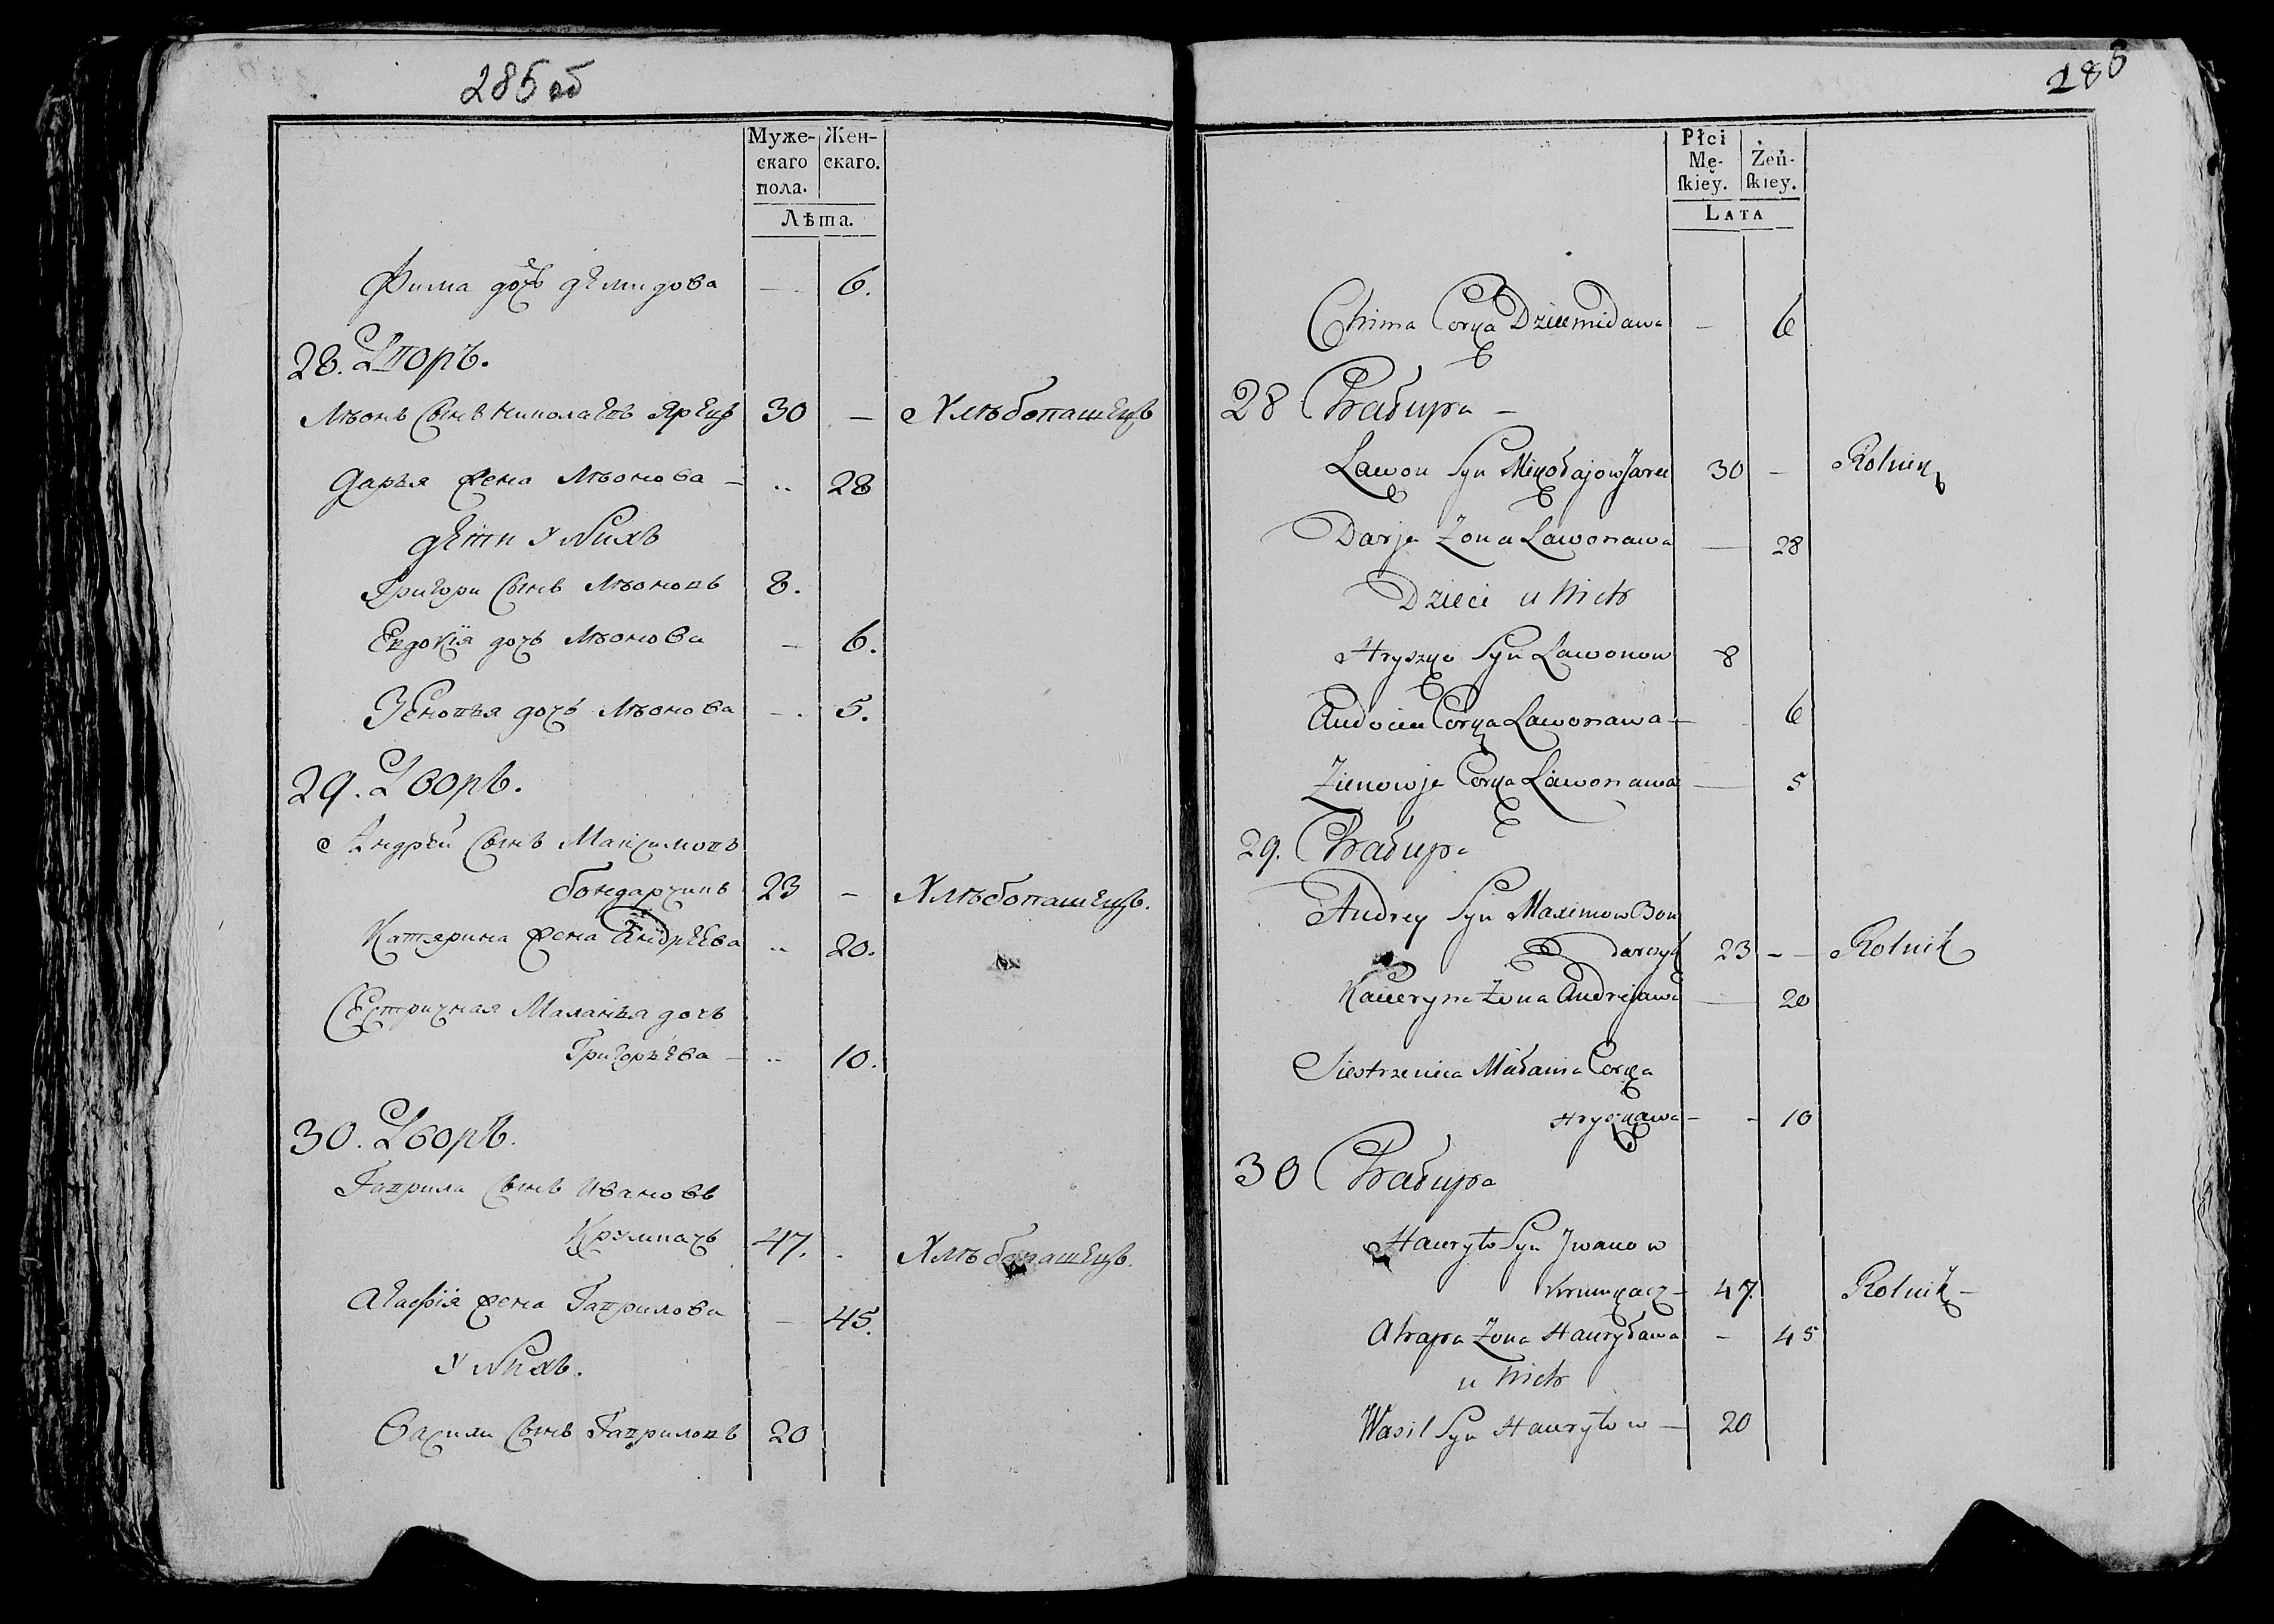 285 об
Муже-
скаго
пола.
Жен-
скаго.
Лѣта.
Фима дочь демидова — 6.
28. Дворъ.
Лѣонъ сынъ николаевъ Ярецъ 30 — Хлѣбопашецъ
Дарья жена Лѣонова — 28
дети у нихъ
Григори сынъ Лѣоновъ 8.
Евдокія дочь Лѣонова — 6.
Зеновья дочь Лѣонова — 5.
29. Дворъ.
Андрей сынъ Максимовъ
бондарчикъ 23 — Хлѣбопашецъ.
Катярина жена Андреева 20.
Сестричная Маланья дочь
Григорьева — 10.
30. Дворъ.
Гаврила сынъ Ивановъ
Крумкачъ 47. Хлѣбопашецъ.
Агафія жена Гаврилова — 45.
У нихъ.
Васили сынъ Гавриловъ 20
286
Płci
Mę-
ſkiey.
Żeń-
ſkiey.
LATA
Chima Corka Dziemidawa — 6
28 Chałupa —
Lawon Syn Mikołajow Jarec 30 — Rolnik
Darja Zona Lawonawa — 28
Dzieci u nich
Hryszko Syn Lawonow 8
Audocia Corka Lawonawa — 6
Zienowja Corka Lawonawa — 5
29. Chałupa
Andrey Syn Maximow Bon
darczyk 23 — Rolnik
Kacieryna Żona Andrejawa — 20
Siestrzenica Małania Corka
Hryszkawa — 10
30 Chałupa
Hauryło Syn Jwanow
Krumkacz — 47. Rolnik —
Ahapa Zona Hauryława — 45
u nich
Wasil Syn Hauryłow — 20